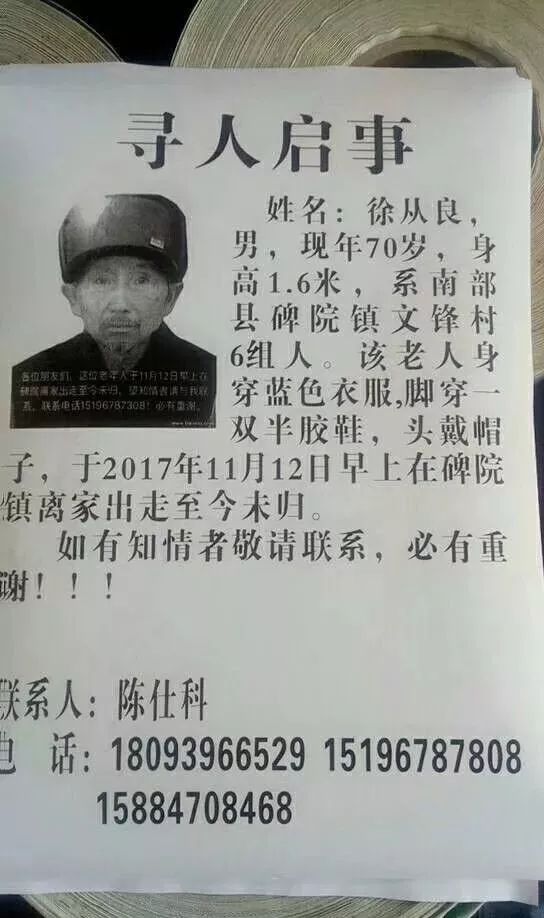 寻人启事
姓名：徐从良，
男，现年70岁，身
高1.6米，系南部
县碑院镇文锋村
6组人。该老人身
穿蓝色衣服,脚穿一
双半胶鞋，头戴帽
子，于2017年11月12日早上在碑院
镇离家出走至今未归。
如有知情者敬请联系，必有重
谢！！！
各位朋友们，这位老年人于11月12日早上在
碑院离家出走至今未归，望知情者请与我联
系，联系电话15196787308！必有重谢。
联系人：陈仕科
电 话：18093966529 15196787808
15884708468